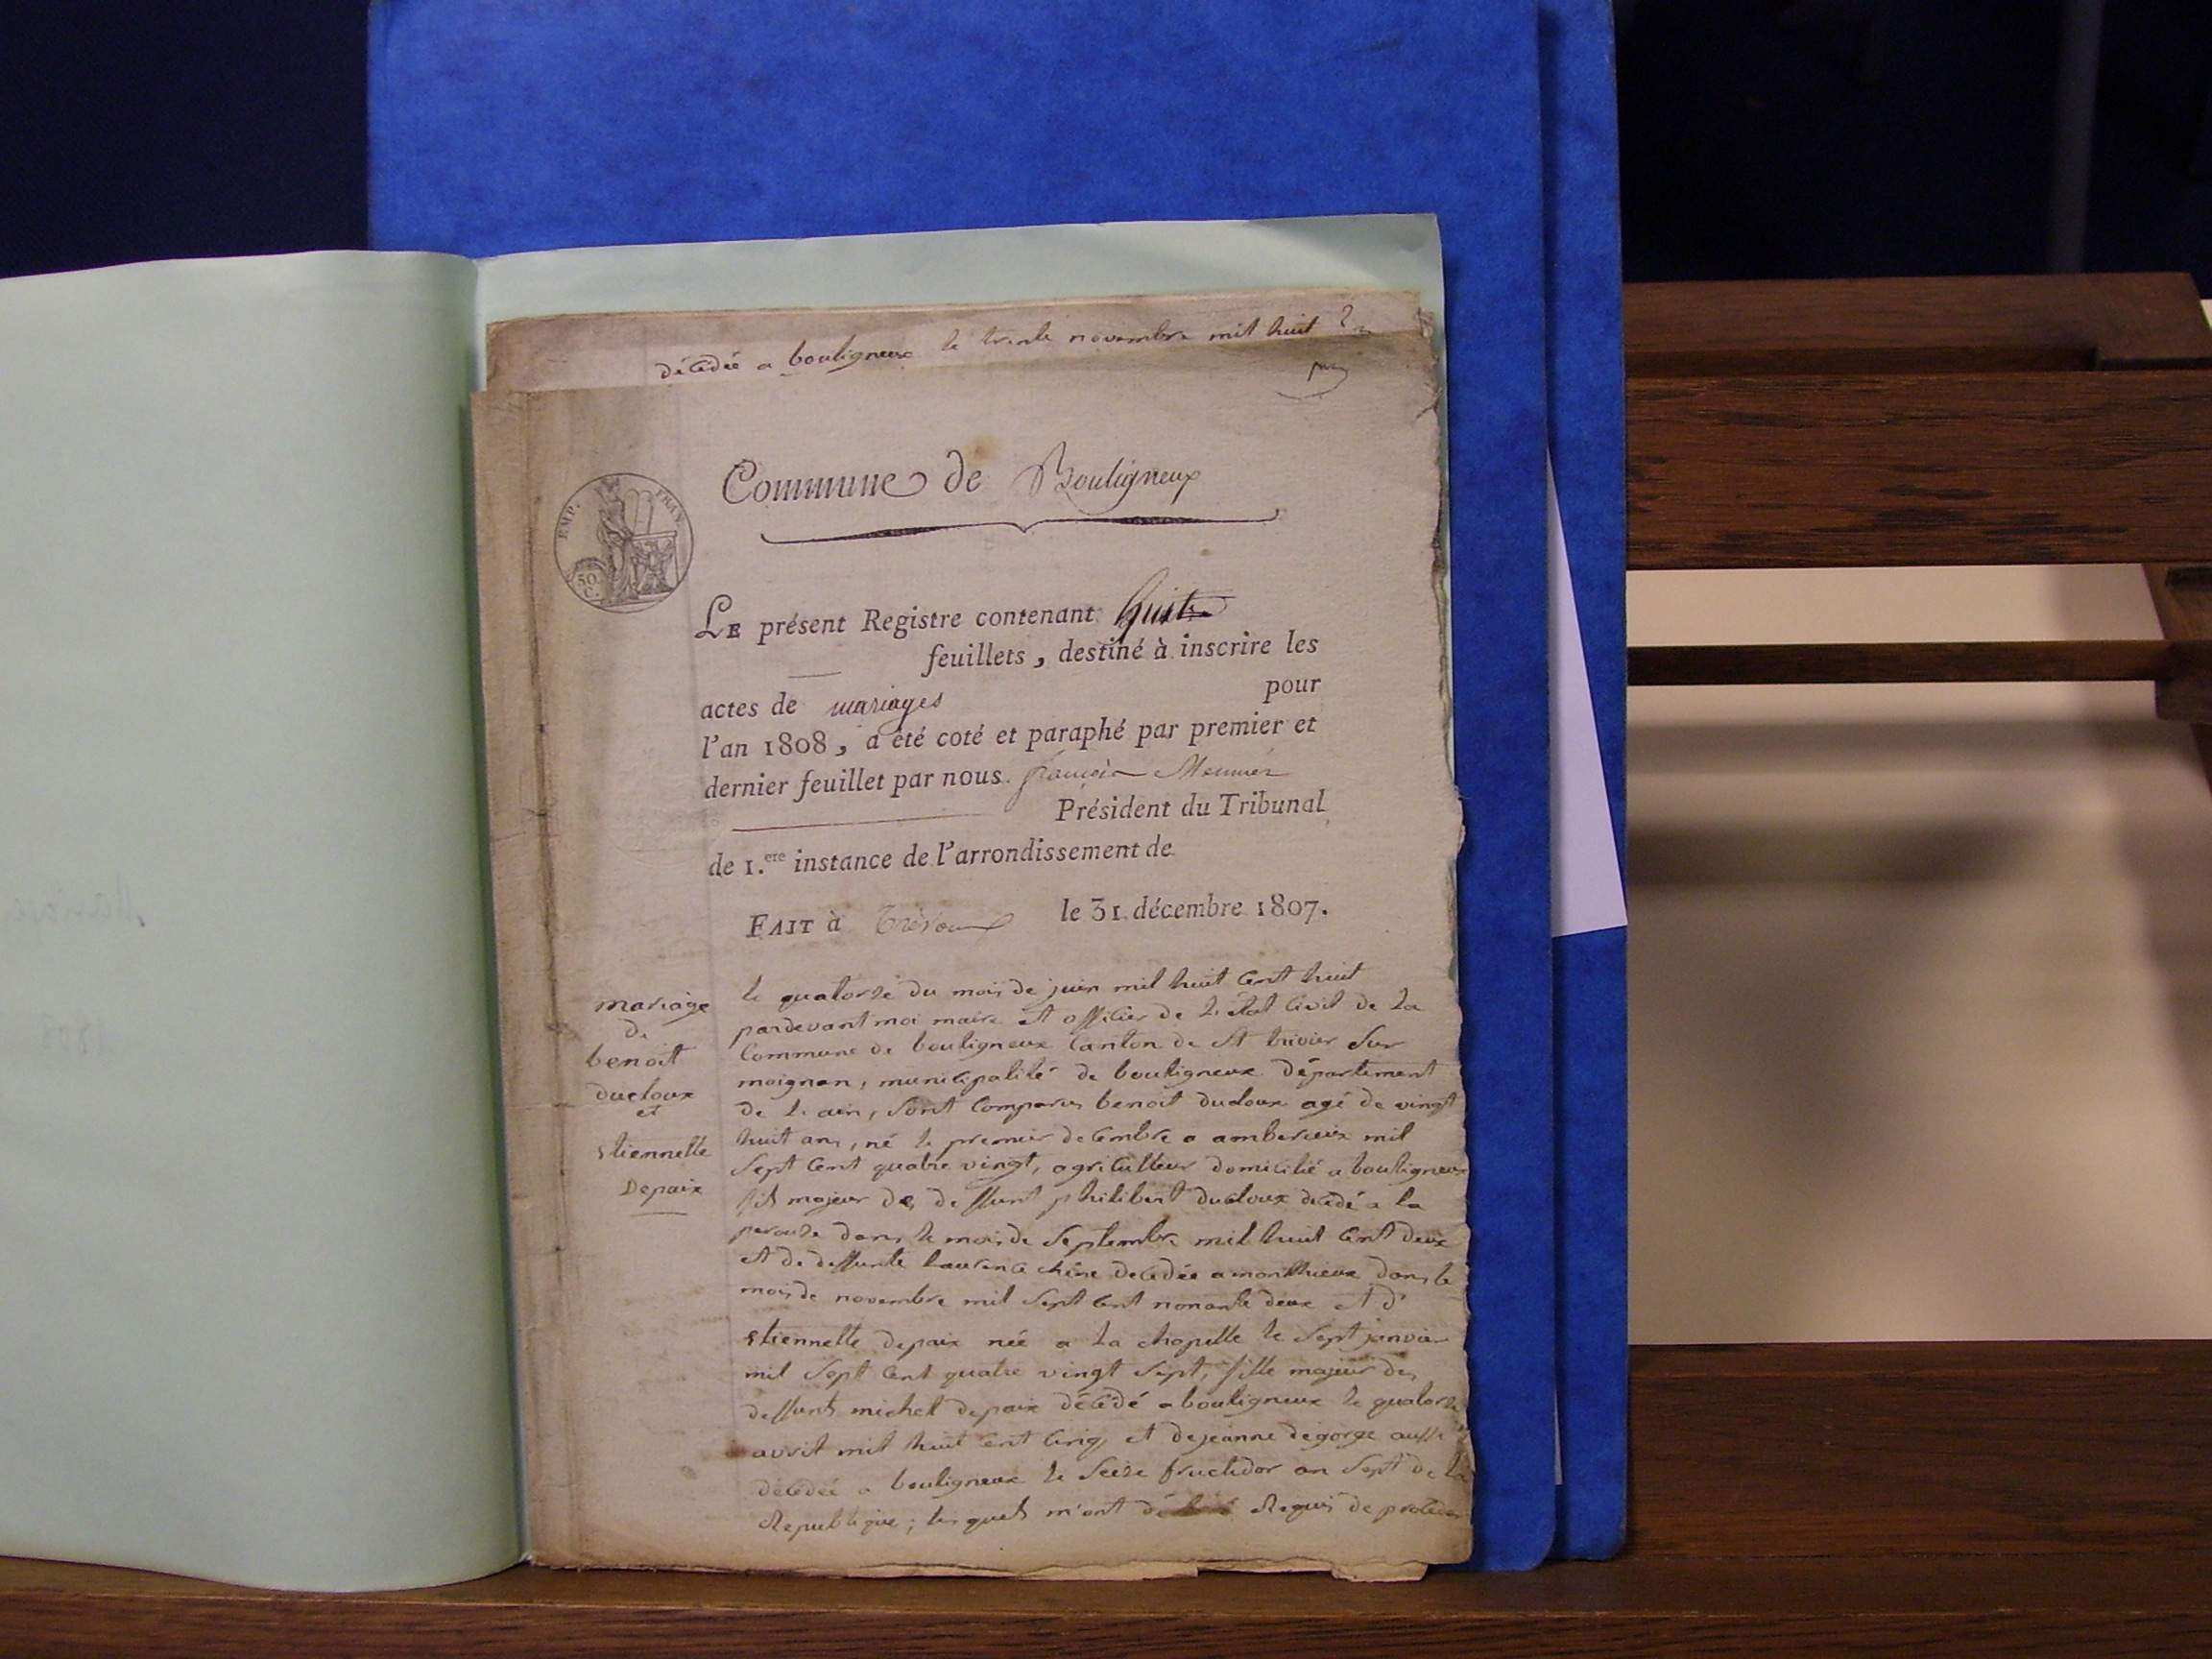 décédée a bouligneux le trente novembre mil huit
Commune de Bouligneux
EMP. FRAN.
50 C.
LE présent Registre contenant huit
feuillets, destiné à inscrire les
actes de mariages pour
l'an 1808, a été coté et paraphé par premier et
dernier feuillet par nous françois Meunier
Président du Tribunal
de 1.ere instance de l'arrondissement de
FAIT à Trévoux le 31 décembre 1807.
mariage
de
benoit
ducloux
et
etiennette
Depaix
le quatorze du mois de juin mil huit cent huit
pardevant moi maire et officier de l'etat civil de la
Commune de bouligneux Canton de St trivier Sur
moignan, municipalité de bouligneux département
de l'ain, sont comparus benoit ducloux agé de vingt
huit ans, né le premier decembre a amberieux mil
sept cent quatre vingt, agriculteur domicilié a bouligneux
fils majeur des deffunt philibert ducloux decédé a la
perouze dans le mois de septembre mil huit cent deux
et de deffunte laurence chêne decedée a monthieux dans le
mois de novembre mil sept cent nonante deux et d'
etiennette depaix née a la chapelle le sept janvier
mil sept cent quatre vingt sept, fille majeur des
deffunts michel depaix décédé a bouligneux le quatorze
avril mil huit cent cinq, et de jeanne degorge aussi
décédée a bouligneux le seize fructidor an sept de la
Republique; les quels m'ont requis de